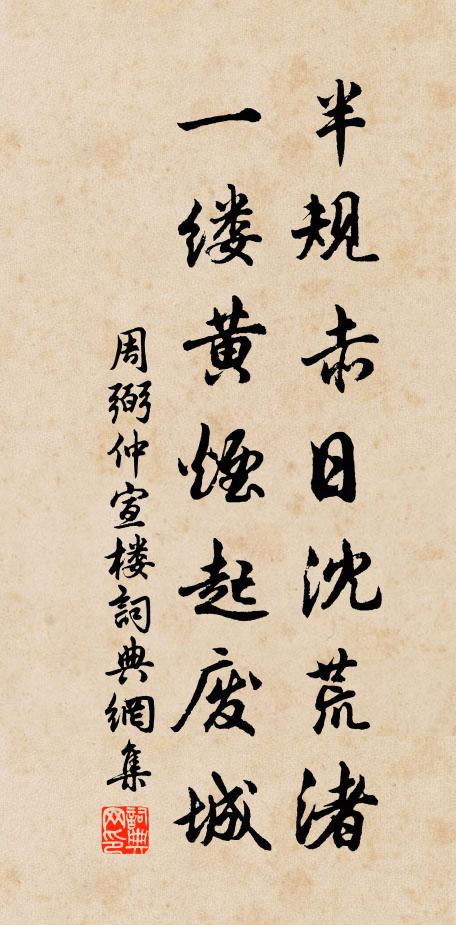 半规赤日沈荒渚
一缕黄煙起废城
周弼仲宣楼詞典網集
詞典网印